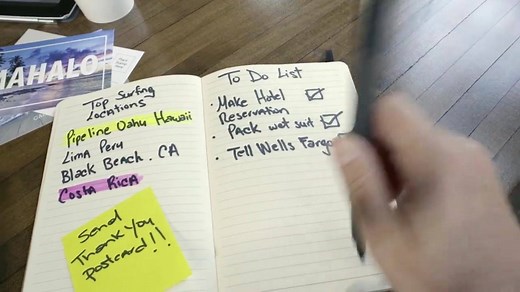 MAHALO
Top Surfing
Locations
Pipeline Oahu Hawaii
Lima Peru
Black Beach. CA
Costa Rica
Send
Thank You
Postcard!!
To Do List
• Make Hotel
Reservation
• Pack wet suit
• Tell Wells Fargo